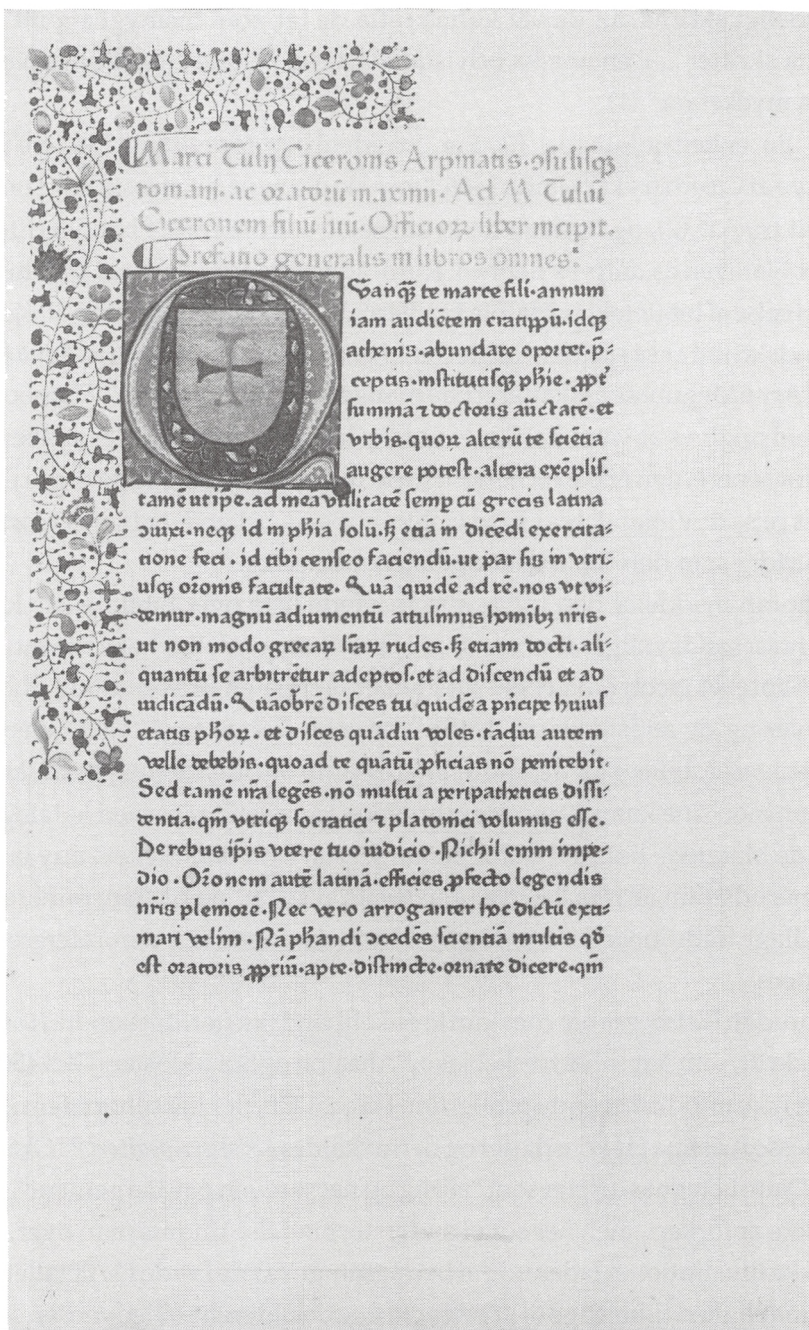 Marci Tulij Ciceronis Arpinatis·ↄſuliſqꝫ
romani·ac oratoꝝ maximi·Ad M Tuliū
Ciceronem filiū ſuū·Officioꝝ liber incipit.
Prefatio generalis in libros omnes:
Quanqꝫ te marce fili·annum
iam audiētem cratippū·idqꝫ
athenis·abundare oportet·p̄⸗
ceptis·inſtitutiſqꝫ phīe·ꝓpt̄
ſummā ⁊ doctoris auc̄tatē·et
vrbis·quoꝝ alterū te ſciētia
augere poteſt·altera exēplis.
tamē ut ip̄e·ad mea vtilitatē ſemp̱ cū grecis latina
ↄiūxi·neqꝫ id in phīa ſolū·ſꝫ etiā in dicēdi exercita⸗
tione feci·id tibi cenſeo faciendū·ut par ſis in vtri⸗
uſqꝫ or̄onis facultate·Quā quidē ad rē·nos vt vi⸗
demur·magnū adiumentū attulimus homībꝫ nr̄is·
ut non modo grecaꝝ lr̄aꝝ rudes·ſꝫ etiam docti·ali⸗
quantū ſe arbitrētur adeptos·et ad diſcendū et ad
iudicādū·Quāobrē diſces tu quidē a pͥncipe huiuſ
etatis ph̄oꝝ·et diſces quādiu voles·tādiu autem
velle debebis·quoad te quātū ꝓficias nō penitebit·
Sed tamē nr̄a legēs·nō multū a peripatheticis diſſi⸗
dentia·qm̄ vtriqꝫ ſocratici ⁊ platonici volumus eſſe.
De rebus ip̄is vtere tuo iudicio·Nichil enim impe⸗
dio·Or̄onem autē latinā·efficies ꝓfecto legendis
nr̄is pleniorē·Nec vero arroganter hoc dictū exti⸗
mari velim·Nā ph̄andi ↄcedēs ſcientiā multis qd̄
eſt oratoris ꝓpriū·apte·diſtincte·ornate dicere·qm̄